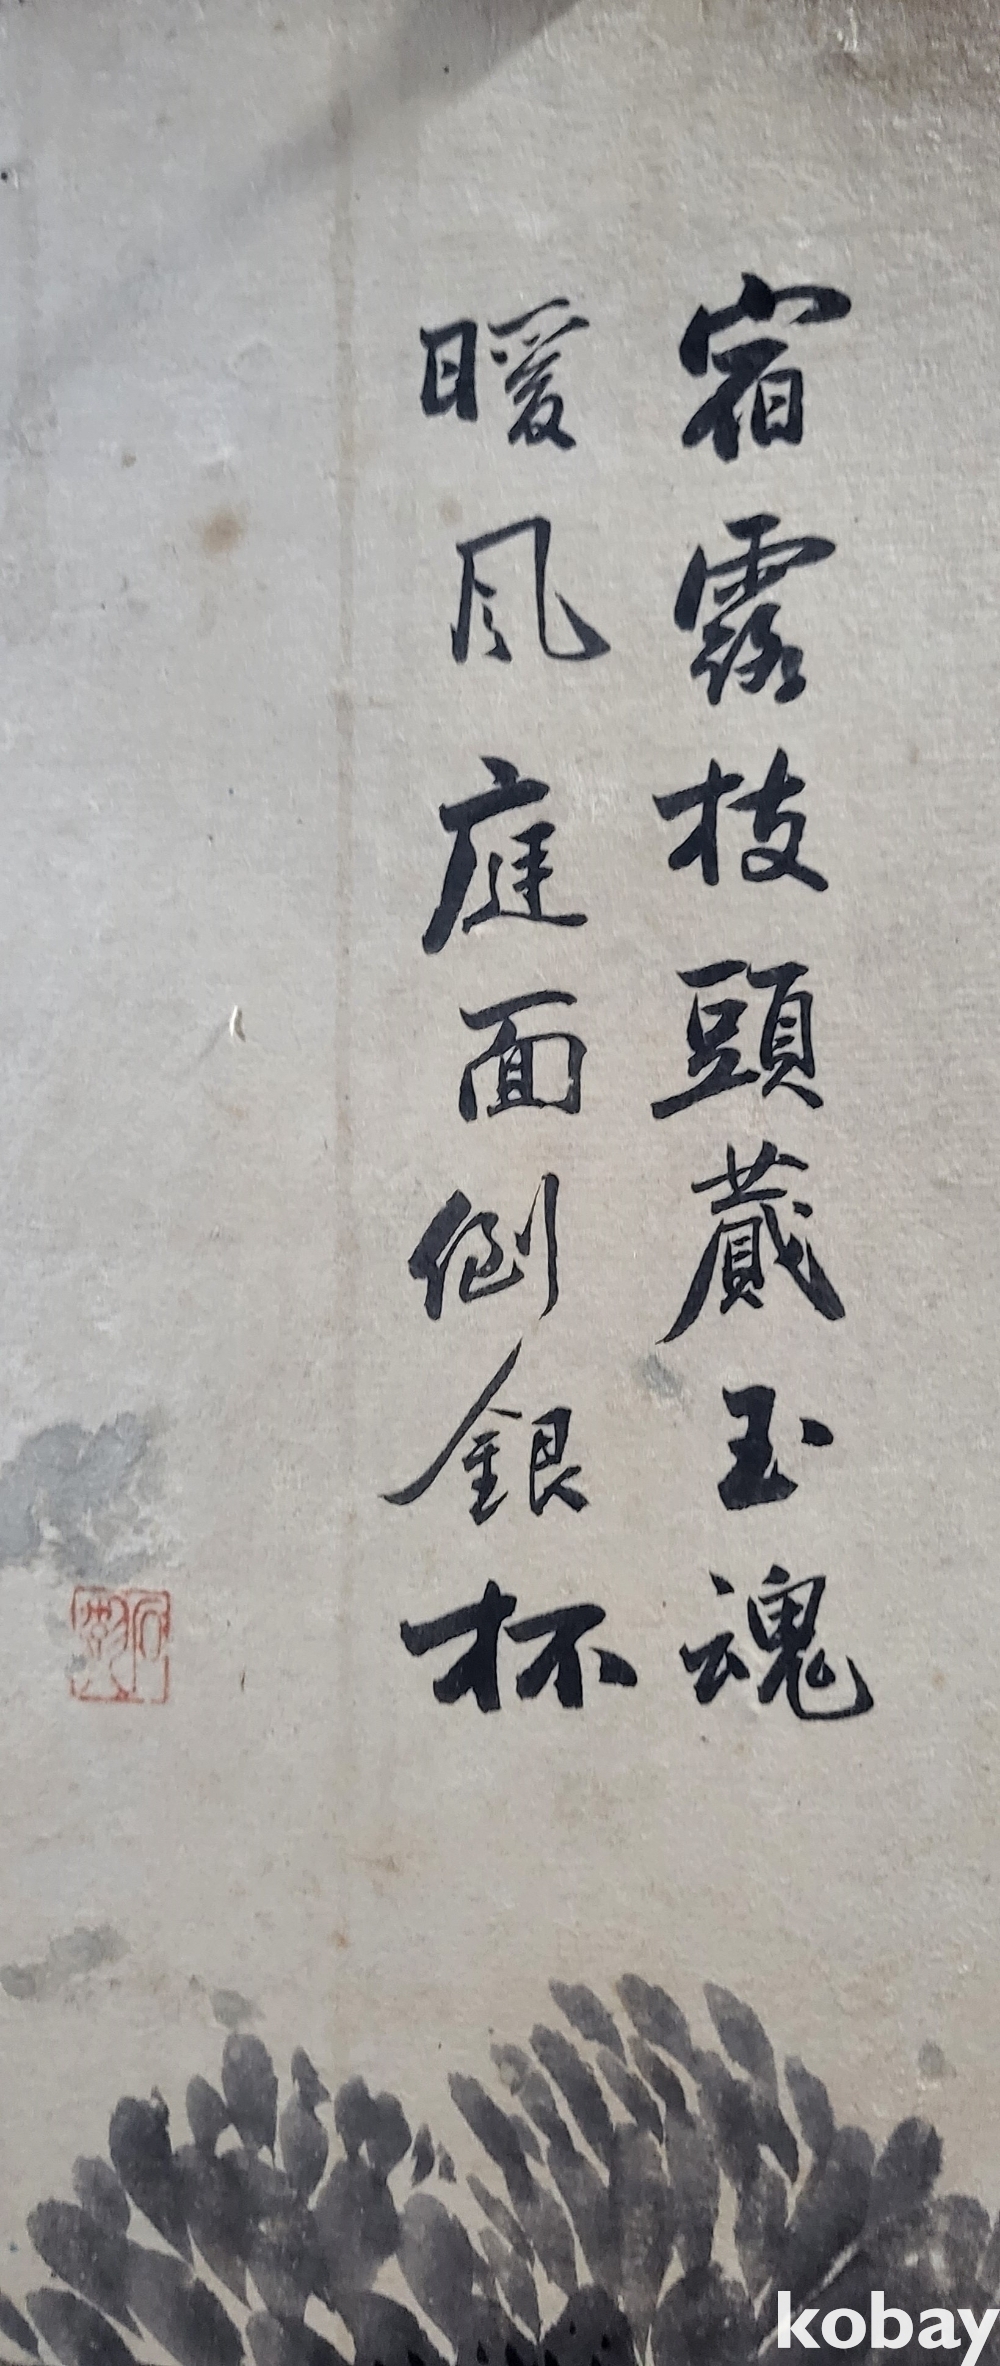 宿露枝頭藏玉魂
暖風庭面倒銀杯
kobay